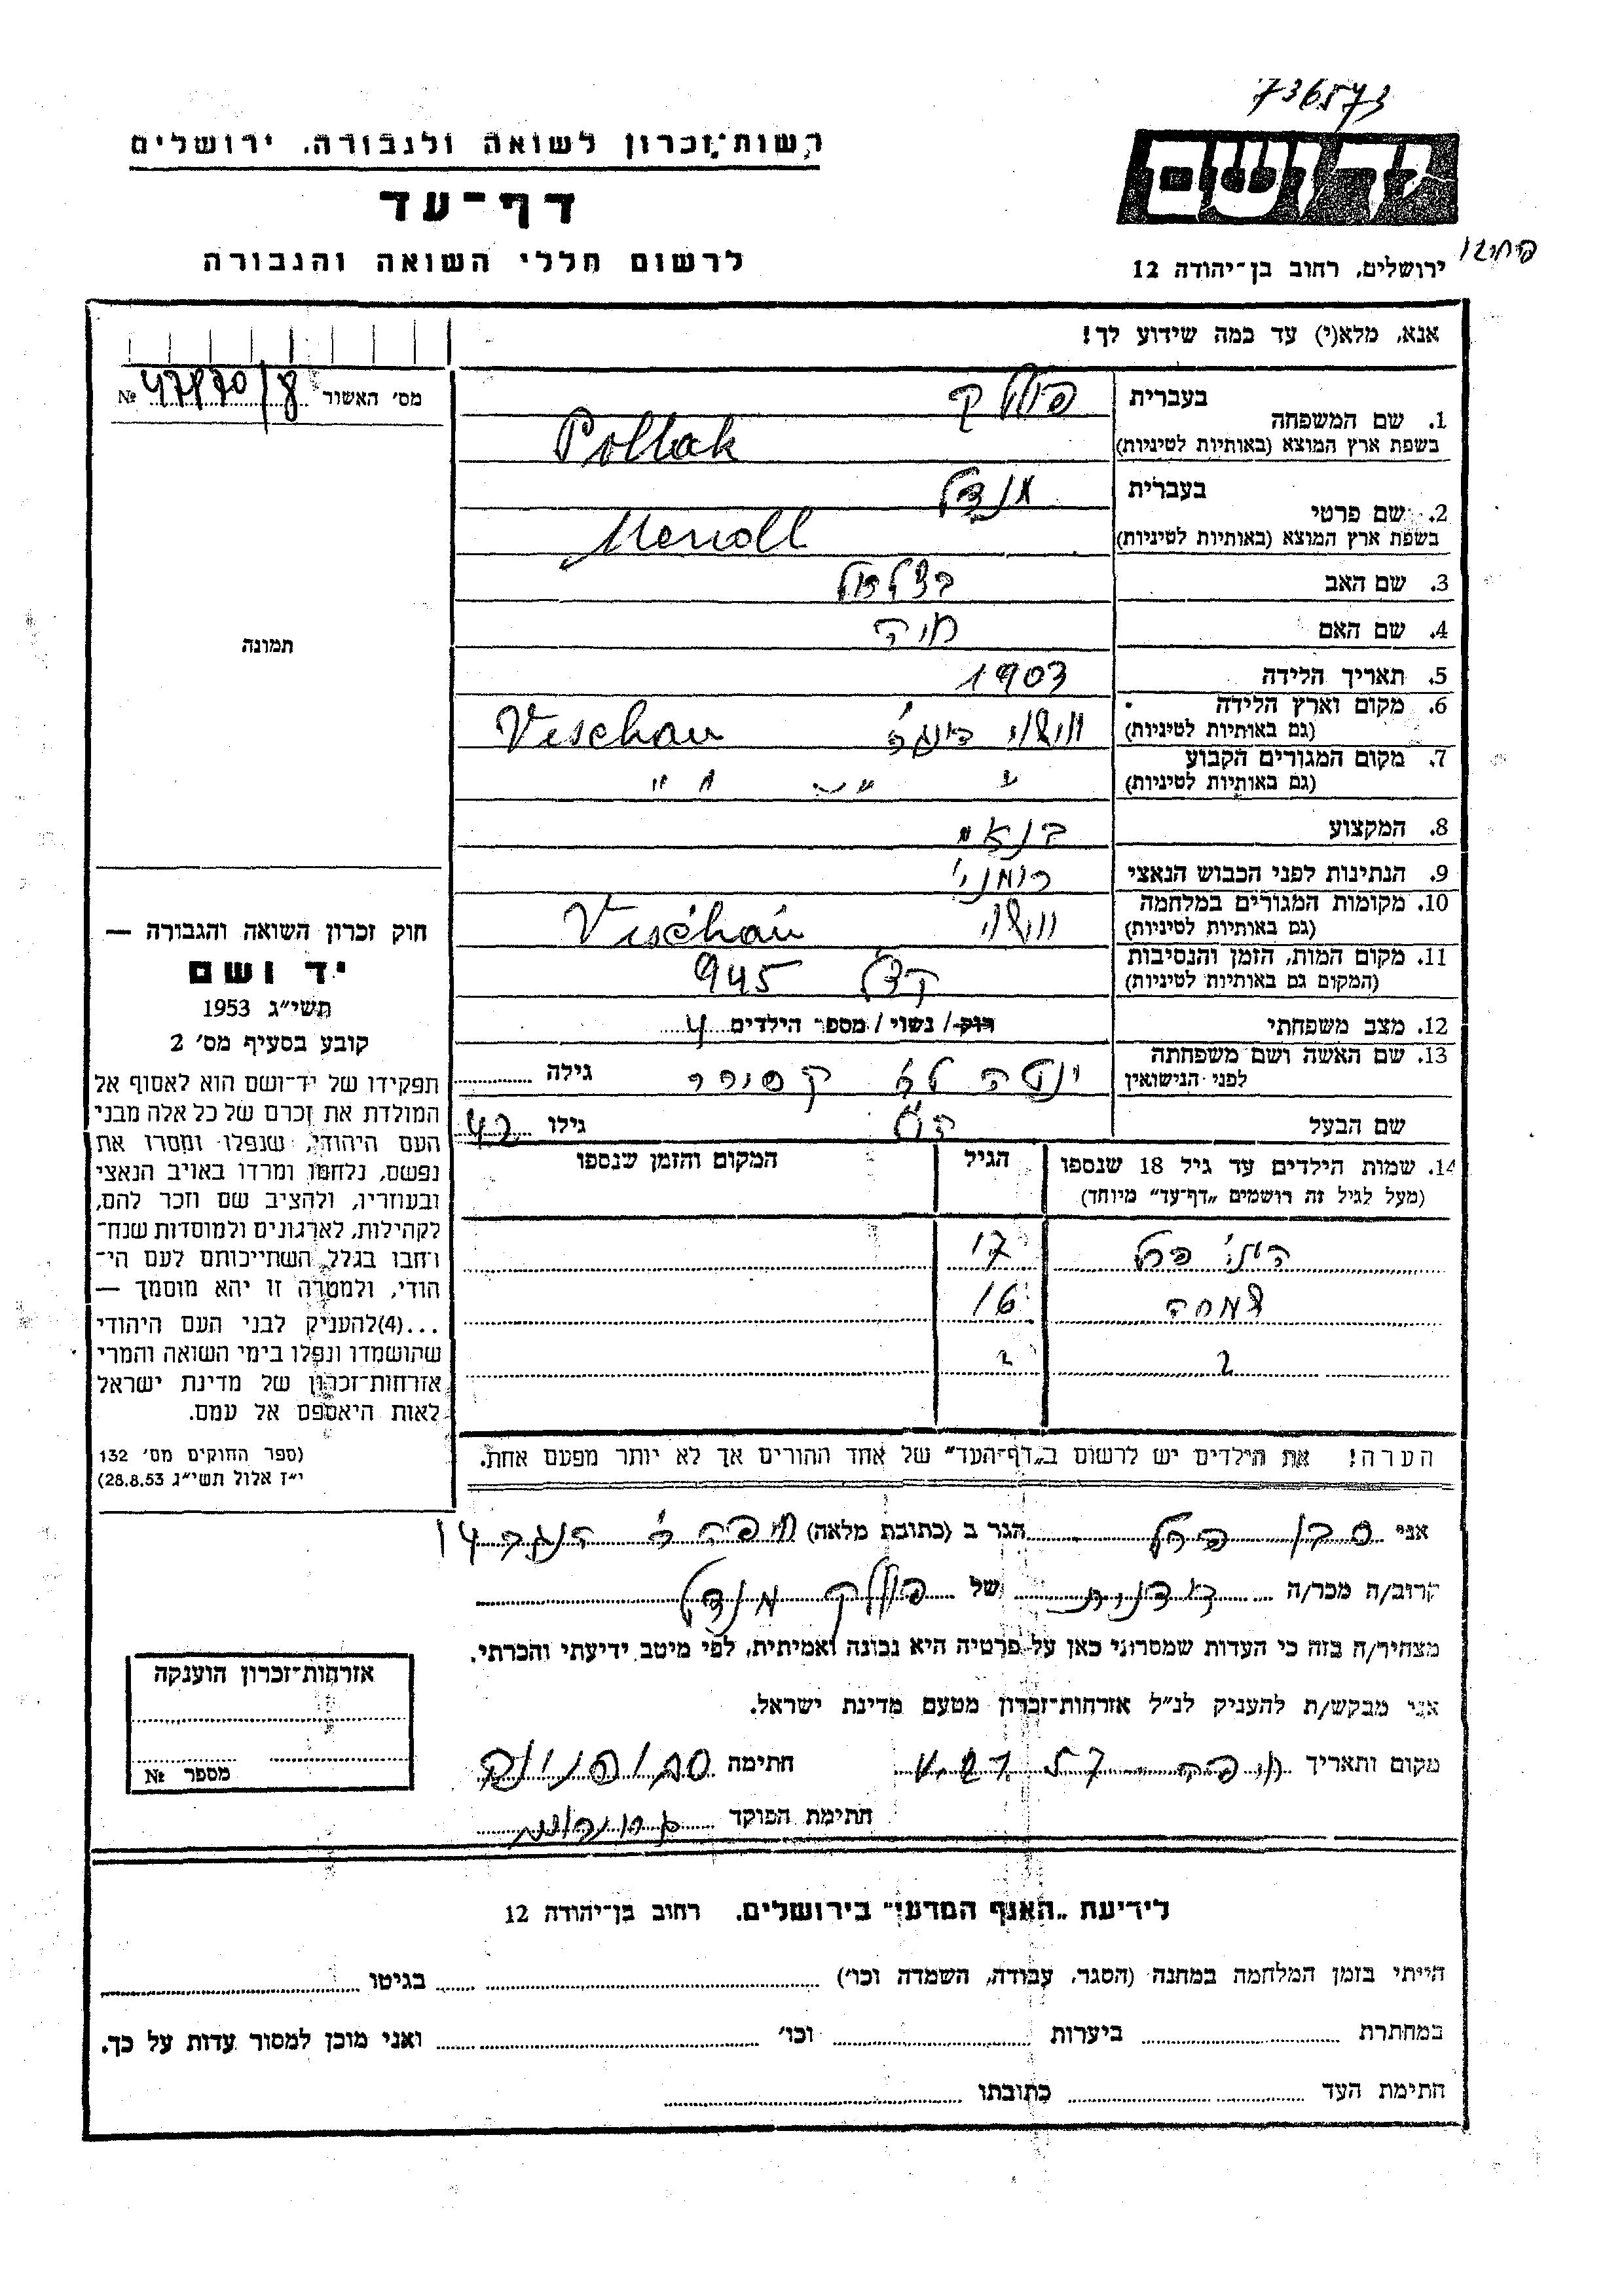 736573
רשות־זכרון לשואה ולגבורה. ירושלים
דף־עד
לרשום חללי השואה והגבורה
ידושם
ירושלים, רחוב בן־יהודה 12
אנא, מלא(י) עד כמה שידוע לך!
מס׳ האשור № 47870/8
תמונה
בעברית פולק
1. שם המשפחה
בשפת ארץ המוצא (באותיות לטיניות) Pollak
בעברית מנדל
2. שם פרטי
בשפת ארץ המוצא (באותיות לטיניות) Mendl
3. שם האב בצלאל
4. שם האם חיה
5. תאריך הלידה 1903
6. מקום וארץ הלידה
(גם באותיות לטיניות) Vischau
7. מקום המגורים הקבוע
(גם באותיות לטיניות) " "
8. המקצוע בנאי
9. הנתינות לפני הכבוש הנאצי רומני
10. מקומות המגורים במלחמה
(גם באותיות לטיניות) Vischau
11. מקום המות, הזמן והנסיבות
(המקום גם באותיות לטיניות) 945
12. מצב משפחתי רוק / נשוי / מספר הילדים 4
13. שם האשה ושם משפחתה
לפני הנישואין גילה
שם הבעל גילו 42
14. שמות הילדים עד גיל 18 שנספו הגיל המקום והזמן שנספו
(מעל לגיל זה רושמים „דף־עד” מיוחד)
17
שמחה 16
2 2
הערה! את הילדים יש לרשום ב„דף־העד” של אחד ההורים אך לא יותר מפעם אחת.
חוק זכרון השואה והגבורה —
יד ושם
תשי״ג 1953
קובע בסעיף מס׳ 2
תפקידו של יד־ושם הוא לאסוף אל
המולדת את זכרם של כל אלה מבני
העם היהודי, שנפלו ומסרו את
נפשם, נלחמו ומרדו באויב הנאצי
ובעוזריו, ולהציב שם וזכר להם,
לקהילות, לארגונים ולמוסדות שנח־
רחבו בגלל השתייכותם לעם הי־
הודי, ולמטרה זו יהא מוסמך —
...(4)להעניק לבני העם היהודי
שהושמדו ונפלו בימי השואה והמרי
אזרחות־זכרון של מדינת ישראל
לאות היאספם אל עמם.
(ספר החוקים מס׳ 132
י״ז אלול תשי״ג 28.8.53)
אני הגר ב (כתובת מלאה)
קרוב/ה מכר/ה של פולק מנדל
מצהיר/ה בזה כי העדות שמסרתי כאן על פרטיה היא נכונה ואמיתית, לפי מיטב ידיעתי והכרתי.
אני מבקש/ת להעניק לנ״ל אזרחות־זכרון מטעם מדינת ישראל.
מקום ותאריך חתימה
חתימת הפוקד
אזרחות־זכרון הוענקה
מספר №
לידיעת „האגף המדעי” בירושלים, רחוב בן־יהודה 12
הייתי בזמן המלחמה במחנה (הסגר, עבודה, השמדה וכו׳) בגיטו
במחתרת ביערות וכו׳ ואני מוכן למסור עדות על כך.
חתימת העד כתובתו